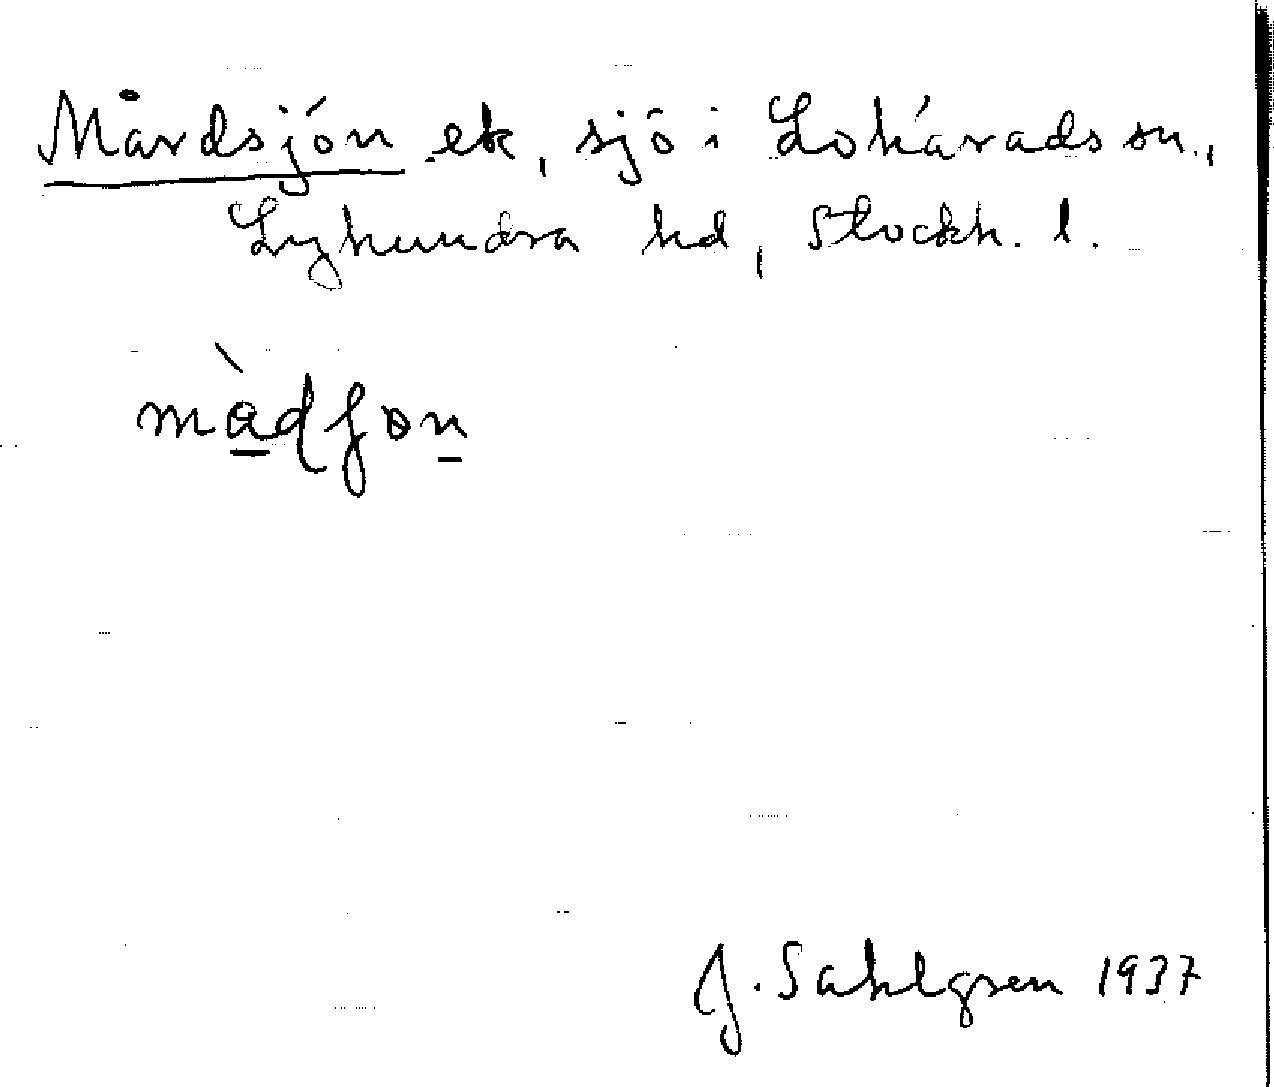 Mårdsjön ek, sjö i Lohärads sn.,
Lyhundra hd, Stockh. l.
J. Sahlgren 1937